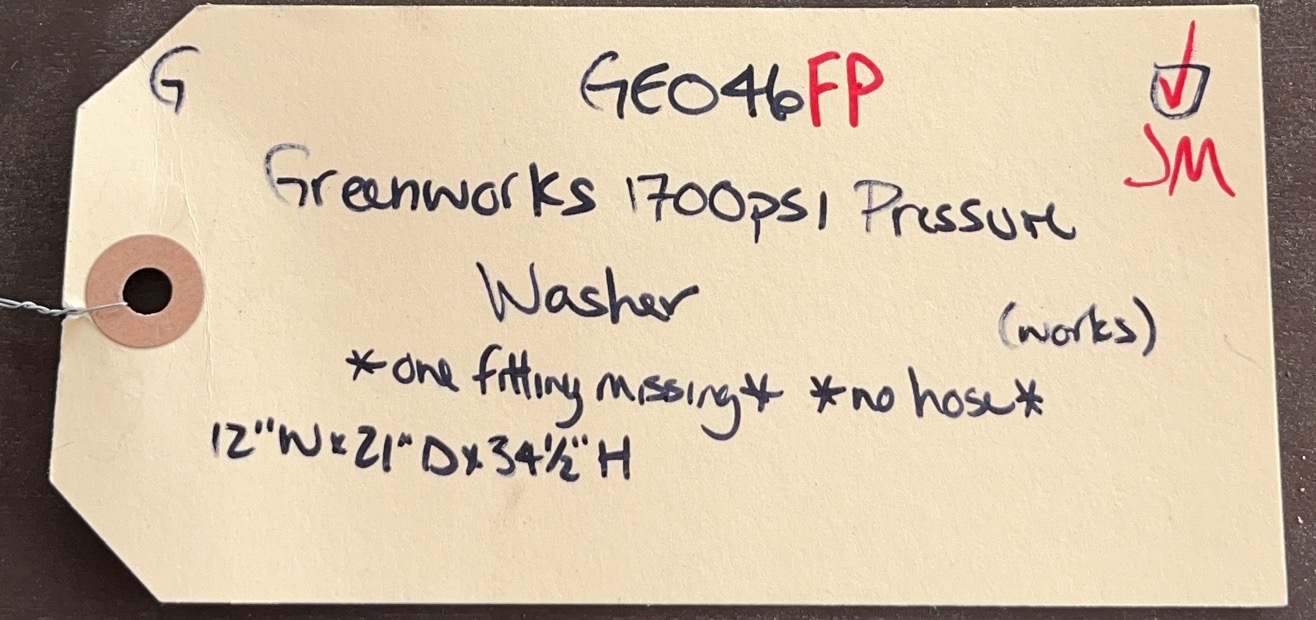 G
GE046FP
JM
Greenworks 1700psi Pressure
Washer
(works)
*one fitting missing* *no hose*
12"W x 21" D x 34½" H